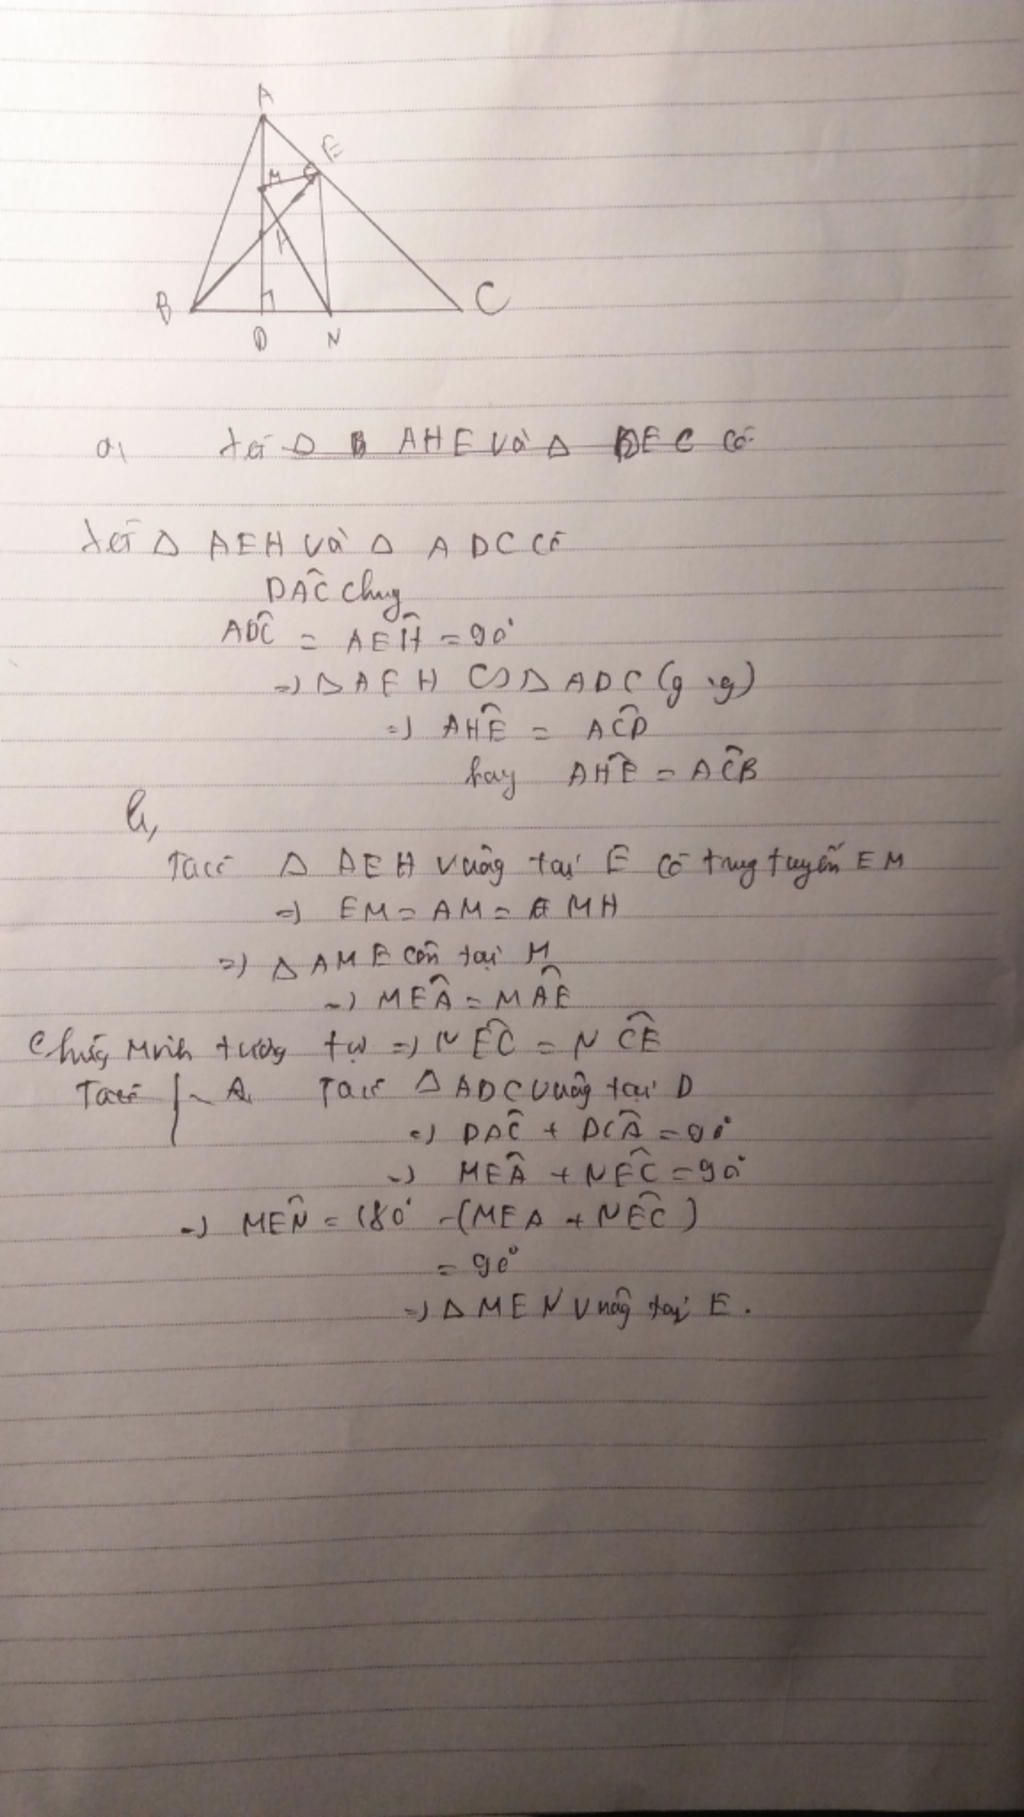 A
E
M
H
B
C
D
N
a, Xét Δ B AHE và Δ BEC Có
Xét Δ AEH và Δ ADC Có
DAC^ Chung
ADC^ = AEH^ = 90°
=) Δ AEH ∽ Δ ADC (g.g)
=) AHE^ = ACD^
hay AHE^ = ACB^
b,
Ta có Δ AEH vuông tại E có trung tuyến EM
=) EM = AM = MH
=) Δ AME cân tại M
=) MEA^ = MAE^
Chứng Minh tương tự =) NEC^ = NCE^
Ta có Ta có Δ ADC vuông tại D
=) DAC^ + DCA^ = 90°
=) MEA^ + NEC^ = 90°
=) MEN^ = 180° - (MEA + NEC^)
= 90°
=) Δ MEN vuông tại E.